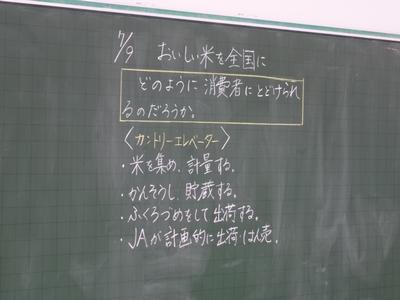 7/9 おいしい米を全国に
どのように消費者にとどけられ
るのだろうか。
〈カントリーエレベーター〉
・米を集め、計量する。
・かんそうし、貯蔵する。
・ふくろづめをして出荷する。
・JAが計画的に出荷・はん売。